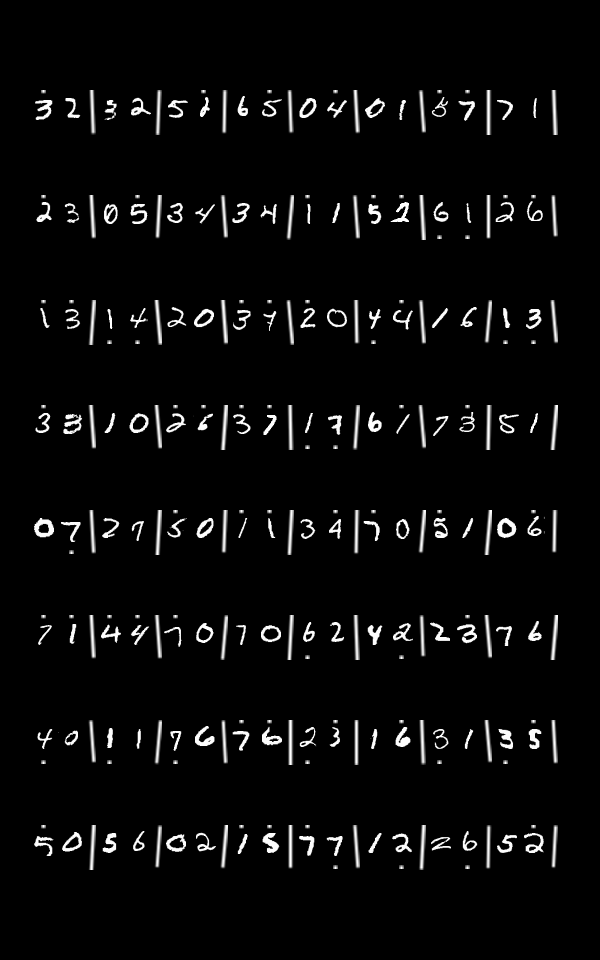 3̇ 2 | 3̇ 2 | 5 2̇ | 6 5̇ | 0 4̇ | 0 1 | 5̇ 7̇ | 7 1 |
2̇ 3 | 0 5̇ | 3 4 | 3 4 | 1̇ 1 | 5̇ 2̇ | 6̣ 1̣ | 2̇ 6̇ |
1̇ 3̇ | 1̣ 4̣ | 2 0 | 3̇ 7̇ | 2̇ 0 | 4̣ 4̇ | 1 6 | 1̣ 3̣ |
3̇ 3 | 1 0 | 2̇ 6̇ | 3̇ 7̇ | 1̣ 7̣ | 6 1̇ | 7 3̇ | 5 1 |
0 7̣ | 2 7 | 5̇ 0 | 1̇ 1̇ | 3 4̇ | 7̇ 0 | 5̇ 1 | 0 6̇ |
7̇ 1̇ | 4̇ 4̇ | 7̇ 0 | 7 0 | 6̣ 2 | 4 2̣ | 2 3̇ | 7 6 |
4̣ 0 | 1̣ 1 | 7̣ 6 | 7̇ 6̇ | 2̣ 3̇ | 1 6̣ | 3̣ 1 | 3̣ 5̣ |
5̇ 0 | 5 6 | 0 2 | 1̇ 5̇ | 7̇ 7̣ | 1 2̣ | 2 6̣ | 5 2̇ |